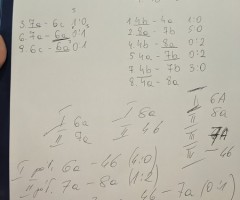 3. 7a - 6c
6. 7a - 6a 0:1
9. 6c - 6a 0:1
1. 4b - 4a 1:0
2. 8a - 3b 5:0
4. 4b - 8a 0:2
5. 4a - 7b 0:2
7. 4b - 7b 3:0
8. 4a - 8a
I 6a
II 7a
I 8a
II 4b
I 6A
II 8a
III 7A
IV 4b
I pół. 6a - 4b (4:0)
II pół. 7a - 8a (1:2)
4b - 7a (0:1)